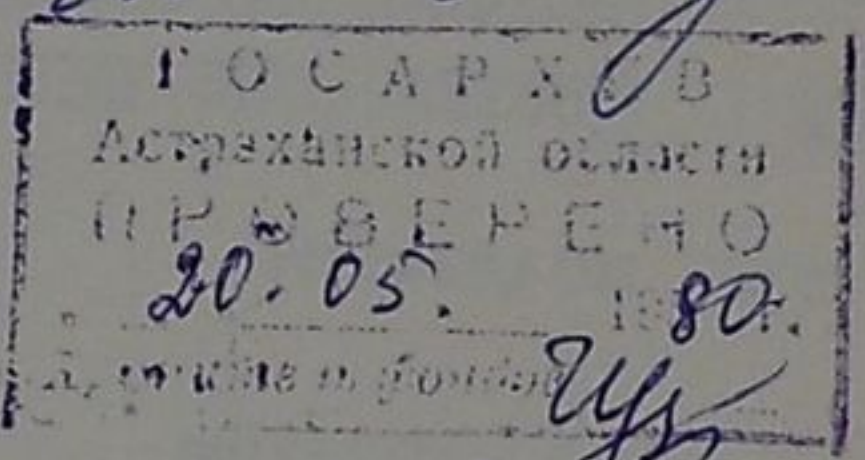 ГОСАРХИВ
Астраханской области
ПРОВЕРЕНО
20. 05. 1980 г.